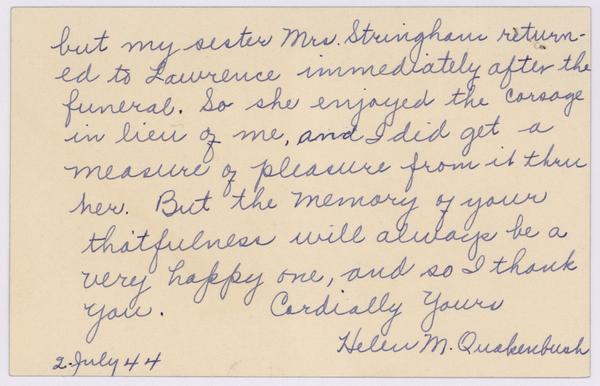 but my sister Mrs. Stringham return-
ed to Lawrence immediately after the
funeral. So she enjoyed the corsage
in lieu of me, and I did get a
measure of pleasure from it thru
her. But the memory of your
thotfulness will always be a
very happy one, and so I thank
you. Cordially Yours
Helen M. Quakenbush
2 July 44